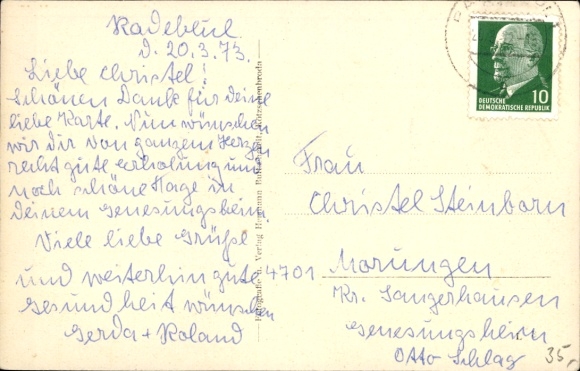 Radebeul
d. 20.3.73.
Liebe Christel!
Schönen Dank für Deine
liebe Karte. Nun wünschen
wir Dir von ganzem Herzen
recht gute Erholung und
noch schöne Tage in
Deinem Genesungsheim.
Viele liebe Grüße
und weiterhin gute
Gesundheit wünschen
Gerda + Roland
Fotografie u. Verlag Hermann
DEUTSCHE
DEMOKRATISCHE REPUBLIK
10
Frau
Christel Steinborn
4701 Morungen
Kr. Sangerhausen
Genesungsheim
Otto Schlag
35,